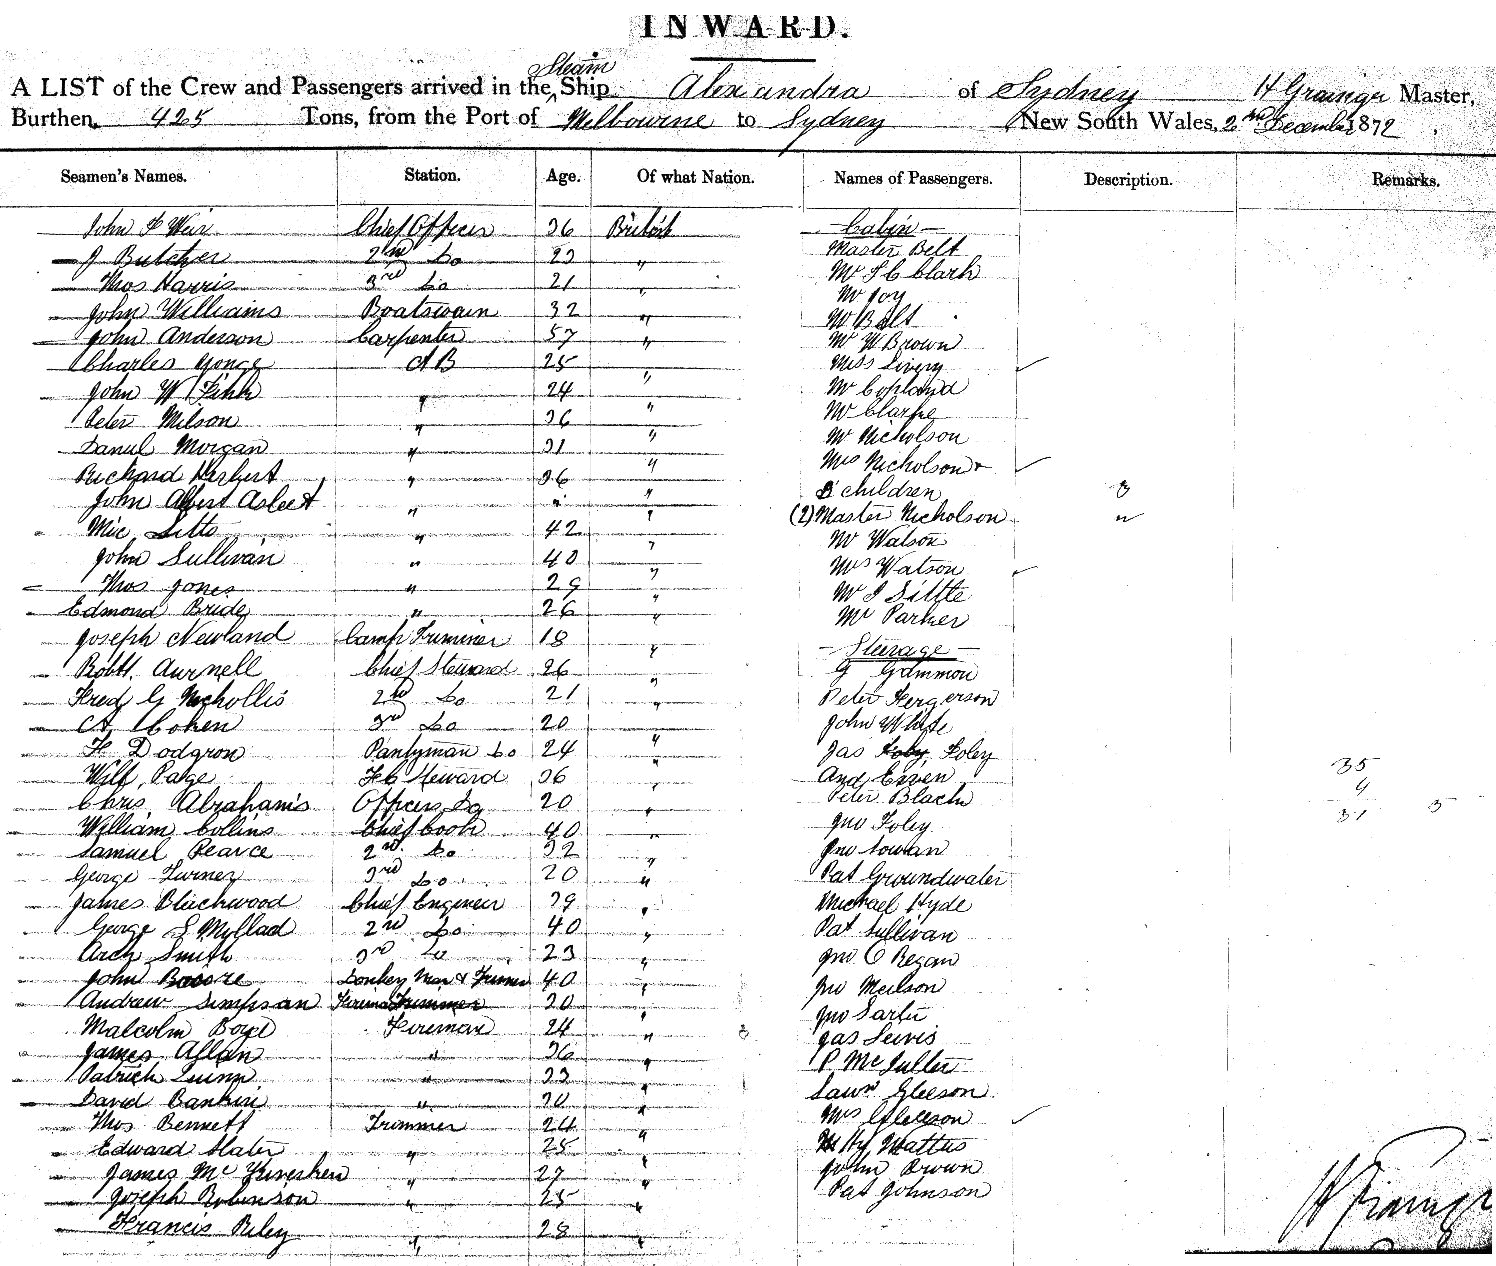 INWARD.
A LIST of the Crew and Passengers arrived in the Steam Ship Alexandra of Sydney H Grainger Master,
Burthen, 425 Tons, from the Port of Melbourne to Sydney New South Wales, 2nd December 1872
Seamen's Names. Station. Age. Of what Nation. Names of Passengers. Description. Remarks.
John F Weir Chief Officer 36 British
J Butcher 2nd Do 23 "
Thos Harris 3rd Do 21 "
John Williams Boatswain 32 "
John Anderson Carpenter 57 "
Charles Yonge AB 25 "
John W " 24 "
Peter Milson " 36 "
Daniel Morgan " 31 "
Richard Herbert " 36 "
John Albert " " "
Mic 42 "
John Sullivan " 40 "
Thos Jones " 29 "
Edmond Bride " 26 "
Joseph Newland Lamp Trimmer 18 "
Robt. Chief Steward 26 "
Fred G Nichollis 2nd Do 21 "
A Cohen 3rd Do 20 "
F Dodgron Pantryman Do 24 "
Wilf Paige F C Steward 36 "
Chris Abrahams Officers Do 20 "
William Collins Chief Cook 40 "
Samuel Pearce 2nd Do 32 "
George Turner 3rd Do 20 "
James Blackwood Chief Engineer 39 "
George S 2nd Do 40 "
Arch Smith 3rd Do 23 "
John Donkey Man & Trimmer 40 "
Andrew Simpson Fireman Trimmer 30 "
Malcolm Boyd Fireman 24 "
James Allan " 36 "
Patrick Quinn " 33 "
David " 30 "
Thos Bennett Trimmer 24 "
Edward Slater " 25 "
James Mc " 27 "
Joseph Robinson " 25 "
Francis Riley " 28 "
Cabin
Master Belt
Mr F C Clark
Mr Joy
Mr Belt
Mr W Brown
Miss Livery
Mr Copland
Mr Clarke
Mr Nicholson
Mrs Nicholson &
3 children 3
(2) Master Nicholson "
Mr Watson
Mrs Watson
Mr J Little
Mr Parker
Steerage
G Gammon
Peter Fergerson
John White
Jas Foley
And
Peter Black
Jno Foley
Jno
Pat Groundwater
Michael Hyde
Pat Sullivan
Jno O Regan
Jno Meilson
Jno
Jas Lewis
P Mc
Lawr Gleeson
Mrs Gleeson
Hy
John Brown
Pat Johnson
35
4
31 5
H Grainger